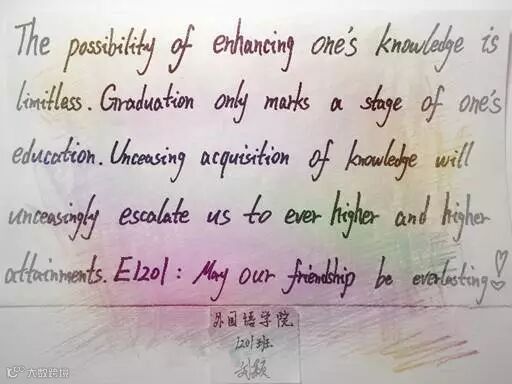 The possibility of enhancing one's knowledge is
limitless. Graduation only marks a stage of one's
education. Unceasing acquisition of knowledge will
unceasingly escalate us to ever higher and higher
attainments. E1201: May our friendship be everlasting♡♡
外国语学院
1201班
刘颖
大数跨境